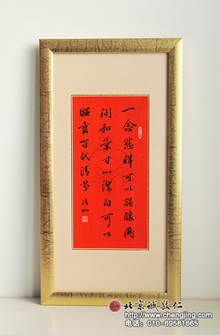 一念慈祥可以醞釀兩
間和氣寸心潔白可以
昭垂百代清芬
北京诚敬仁
http://www.chengjing.com
电话：010-69581865